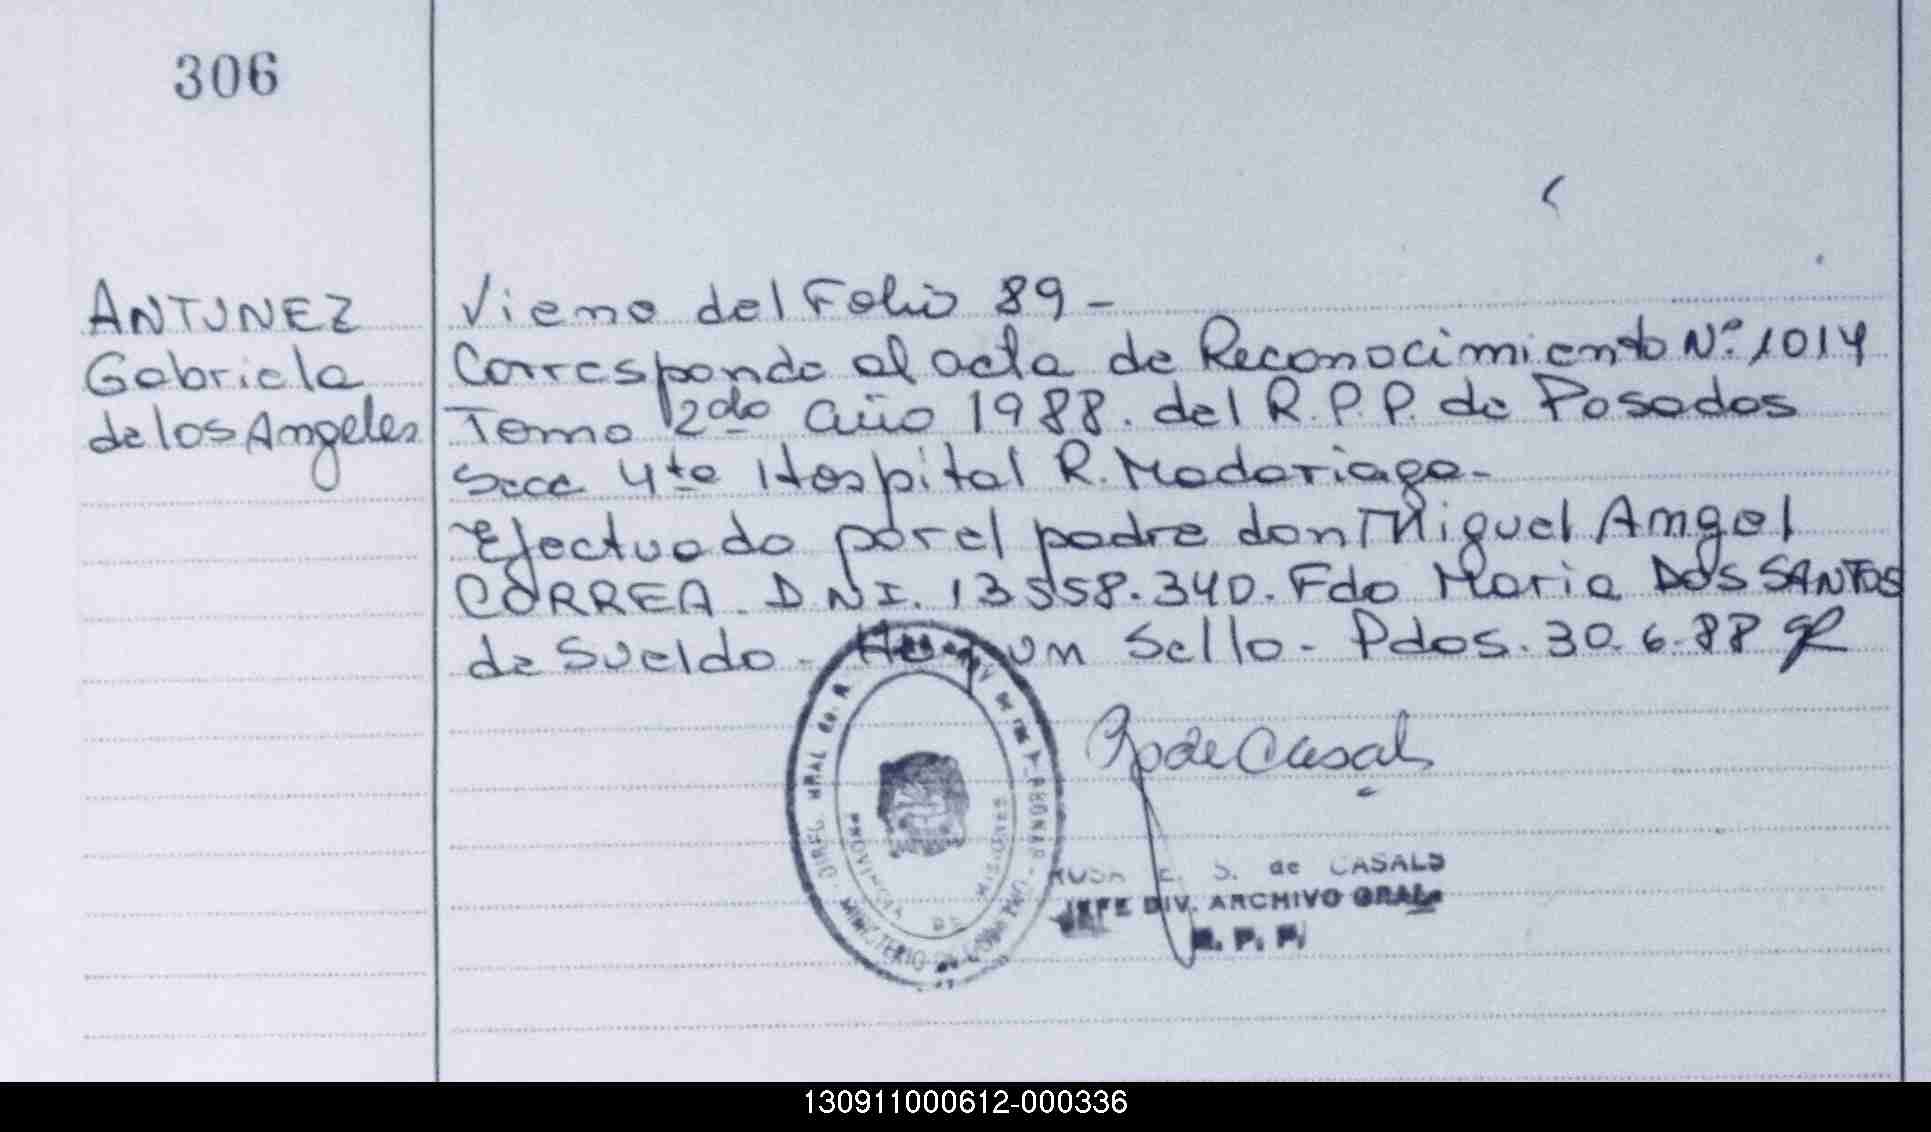 306
ANTUNEZ
Gabriela
de los Angeles
Viene del Folio 89 -
Corresponde al acta de Reconocimiento Nº 1014
Tomo 2do año 1988. del R.P.P. de Posadas
Secc 4ta Hospital R. Madariaga -
Efectuado por el padre don Miguel Angel
CORREA. DNI. 13558.340. Fdo Maria DOS SANTOS
de Sueldo - Hay un Sello - Pdos. 30.6.88
R de Casals
ROSA E. S. de CASALS
JEFE DIV. ARCHIVO GRAL.
R. P. P.
DIREC. GRAL de
PROVINCIA DE MISIONES
MINISTERIO DE GOBIERNO
130911000612-000336